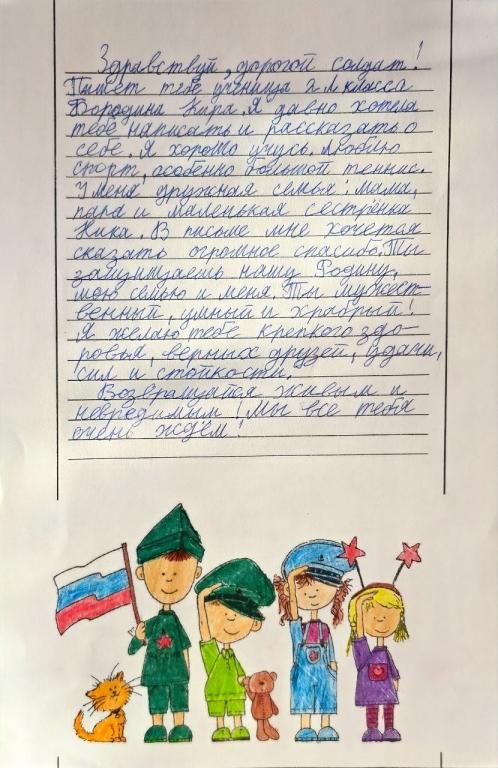 Здравствуй, дорогой солдат!
Пишет тебе ученица 2 Л класса
Бородина Кира. Я давно хотела
тебе написать и рассказать о
себе. Я хорошо учусь, люблю
спорт, особенно большой теннис.
У меня дружная семья: мама,
папа и маленькая сестрёнка
Ника. В письме мне хочется
сказать огромное спасибо. Ты
защищаешь нашу Родину,
мою семью и меня. Ты мужест-
венный, умный и храбрый!
Я желаю тебе крепкого здо-
ровья, верных друзей, удачи,
сил и стойкости.
Возвращайся живым и
невредимым! Мы все тебя
очень ждём!